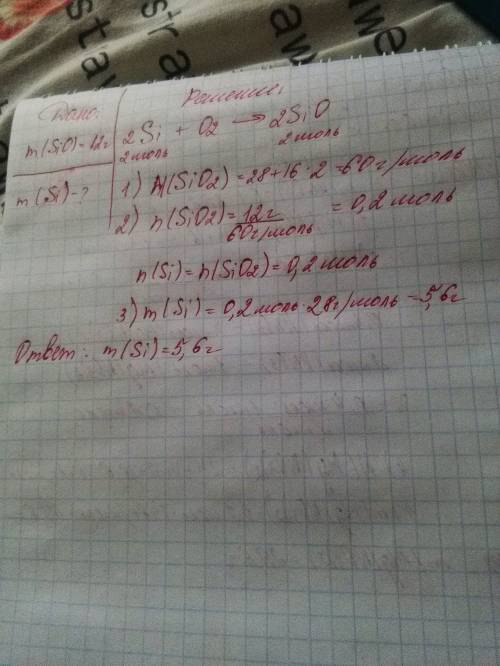 Дано:
m(SiO)=12г
m(Si)-?
Решение:
2Si + O2 → 2SiO
2моль 2моль
1) M(SiO2)=28+16·2=60г/моль
2) n(SiO2)=12г/60г/моль = 0,2моль
n(Si)=n(SiO2)=0,2моль
3) m(Si)=0,2моль·28г/моль=5,6г
Ответ: m(Si)=5,6г